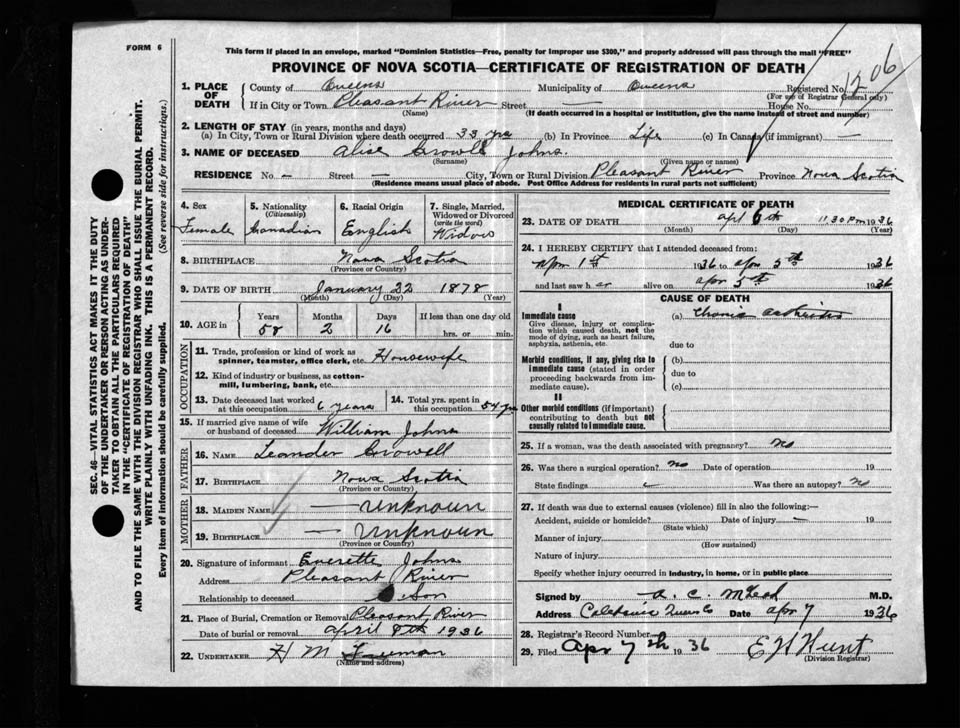 FORM 6
This form if placed in an envelope, marked "Dominion Statistics—Free, penalty for improper use $300," and properly addressed will pass through the mail "FREE"
PROVINCE OF NOVA SCOTIA—CERTIFICATE OF REGISTRATION OF DEATH
SEC. 46—VITAL STATISTICS ACT MAKES IT THE DUTY
OF THE UNDERTAKER OR PERSON ACTING AS UNDER-
TAKER TO OBTAIN ALL THE PARTICULARS REQUIRED
IN THE "CERTIFICATE OF REGISTRATION OF DEATH"
AND TO FILE THE SAME WITH THE DIVISION REGISTRAR WHO SHALL ISSUE THE BURIAL PERMIT.
WRITE PLAINLY WITH UNFADING INK. THIS IS A PERMANENT RECORD.
Every item of information should be carefully supplied. (See reverse side for instructions.)
1. PLACE OF DEATH
County of Queens Municipality of Queens Registered No.
(For use of Registrar General only)
If in City or Town Pleasant River Street — House No.
(Name) (If death occurred in a hospital or institution, give the name instead of street and number)
2. LENGTH OF STAY (in years, months and days)
(a) In City, Town or Rural Division where death occurred 33 yrs (b) In Province Life (c) In Canada (if immigrant) —
3. NAME OF DECEASED Alice Crowell Johns.
(Surname) (Given name or names)
RESIDENCE No. — Street — City, Town or Rural Division Pleasant River Province Nova Scotia
(Residence means usual place of abode. Post Office Address for residents in rural parts not sufficient)
4. Sex
Female
5. Nationality
(Citizenship)
Canadian
6. Racial Origin
English
7. Single, Married,
Widowed or Divorced
(write the word)
Widow
8. BIRTHPLACE Nova Scotia
(Province or Country)
9. DATE OF BIRTH January 22 1878
(Month) (Day) (Year)
10. AGE in
Years Months Days If less than one day old
58 2 16 hrs. or min.
OCCUPATION
11. Trade, profession or kind of work as
spinner, teamster, office clerk, etc. Housewife
12. Kind of industry or business, as cotton-
mill, lumbering, bank, etc.
13. Date deceased last worked
at this occupation 6 years
14. Total yrs. spent in
this occupation 54 yrs
15. If married give name of wife
or husband of deceased William Johns
FATHER
16. NAME Leander Crowell
17. BIRTHPLACE Nova Scotia
(Province or Country)
MOTHER
18. MAIDEN NAME — Unknown
19. BIRTHPLACE — Unknown
(Province or Country)
20. Signature of informant Everette Johns
Address Pleasant River
Relationship to deceased Son
21. Place of Burial, Cremation or Removal Pleasant River
Date of burial or removal April 8th 1936
22. UNDERTAKER H M Freeman
(Name and address)
MEDICAL CERTIFICATE OF DEATH
23. DATE OF DEATH Apl 6th 11.30 PM 1936
(Month) (Day) (Year)
24. I HEREBY CERTIFY that I attended deceased from:
Apr 1st 1936 to Apr 5th 1936
and last saw her alive on Apr 5th 1936
CAUSE OF DEATH
I
Immediate cause
Give disease, injury or complica-
tion which caused death, not the
mode of dying, such as heart failure,
asphyxia, asthenia, etc.
(a) Chronic arthritis
due to
Morbid conditions, if any, giving rise to
immediate cause (stated in order
proceeding backwards from im-
mediate cause).
(b)
due to
(c)
II
Other morbid conditions (if important)
contributing to death but not
causally related to immediate cause.
25. If a woman, was the death associated with pregnancy? No
26. Was there a surgical operation? No Date of operation 19
State findings Was there an autopsy? No
27. If death was due to external causes (violence) fill in also the following:—
Accident, suicide or homicide? Date of injury — 19
(State which)
Manner of injury
(How sustained)
Nature of injury
Specify whether injury occurred in industry, in home, or in public place
Signed by A. C. McLeod M.D.
Address Caledonia Queens Co Date Apr 7 1936
28. Registrar's Record Number
29. Filed Apr 7th 1936 E H Hunt
(Division Registrar)